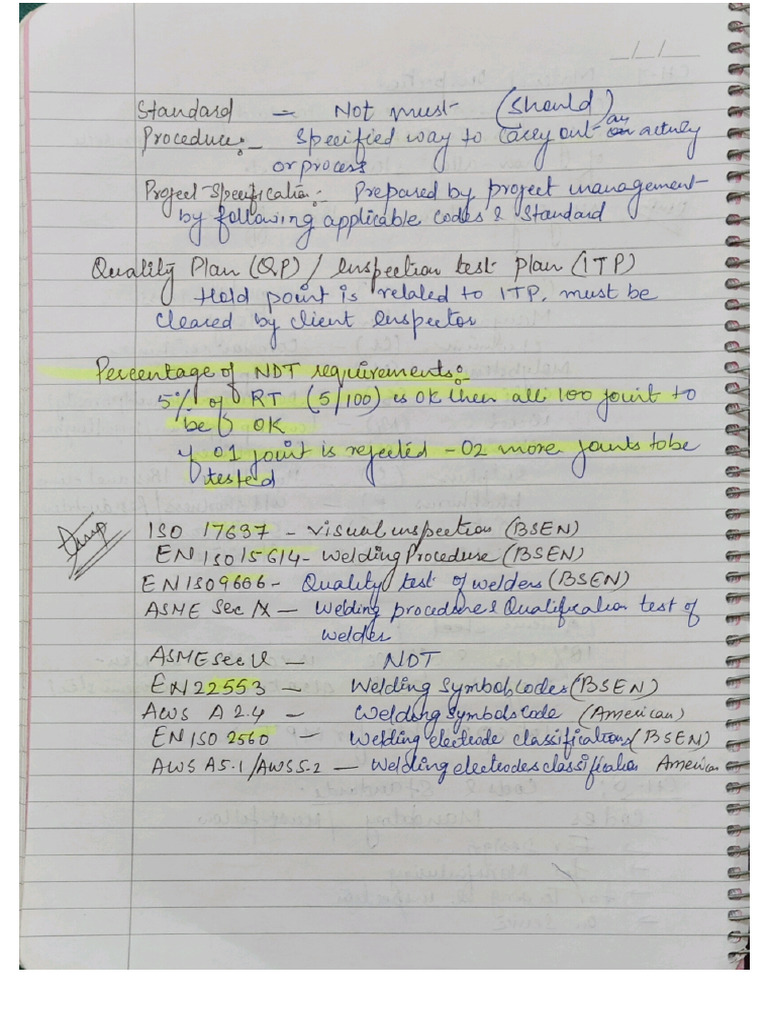 _/_/_
Standard — Not must (should)
Procedure:- Specified way to carry out an activity
or process
Project Specification:- Prepared by project management
by following applicable codes & Standard
Quality Plan (QP) / Inspection test plan (ITP)
Hold point is related to ITP, must be
cleared by client Inspector
Percentage of NDT requirements:-
5% of RT (5/100) is ok then all 100 joint to
be OK
if 01 joint is rejected - 02 more joints to be
tested
Imp
ISO 17637 - Visual inspection (BSEN)
EN ISO 15614 - Welding Procedure (BSEN)
EN ISO 9606 - Quality test of welders (BSEN)
ASME Sec IX — Welding procedure & Qualification test of
welder
ASME Sec V — NDT
EN 22553 — Welding Symbol codes (BSEN)
AWS A 2.4 — Welding symbols code (American)
EN ISO 2560 — Welding electrode classifications (BSEN)
AWS A5.1 / AWS 5.2 — Welding electrodes classification American